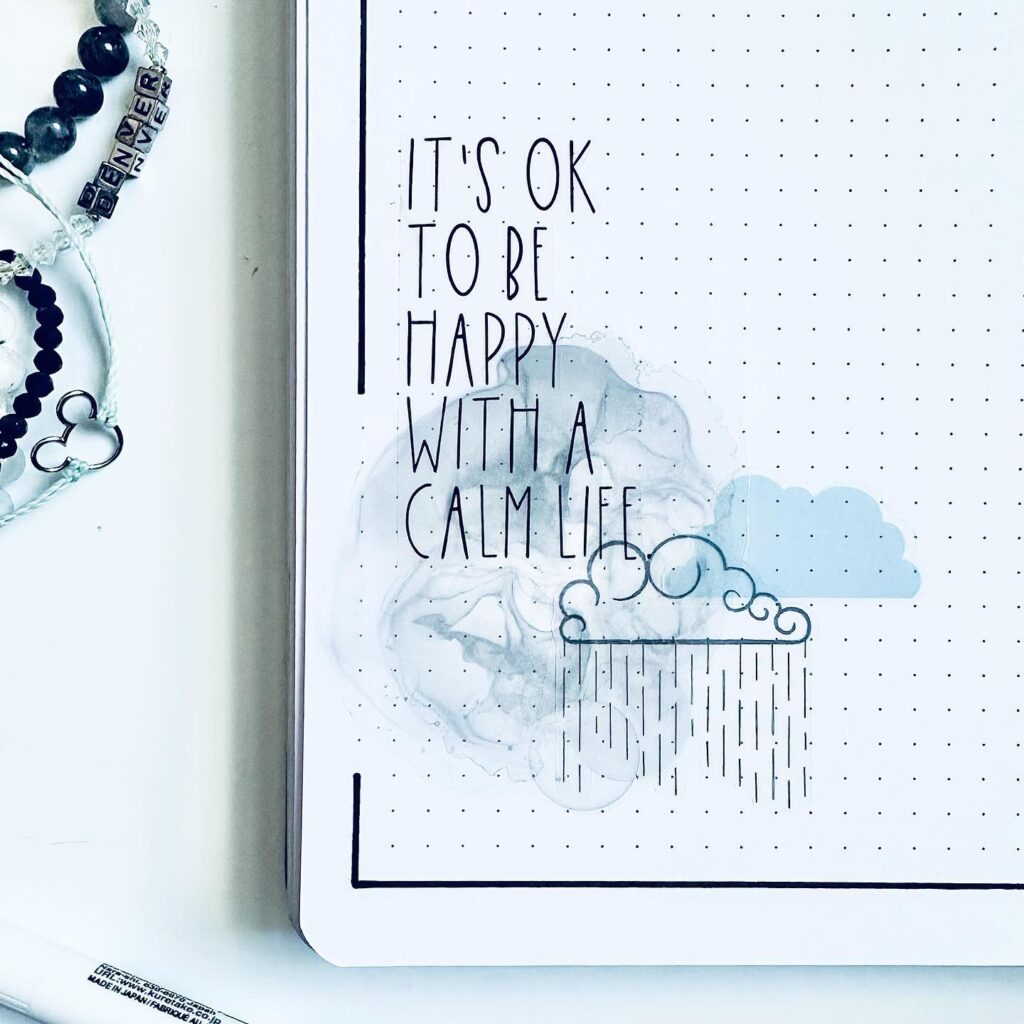 DENVER
IT'S OK
TO BE
HAPPY
WITH A
CALM LIFE.
URL:www.kuretake.co.jp
MADE IN JAPAN / FABRIQUE AU